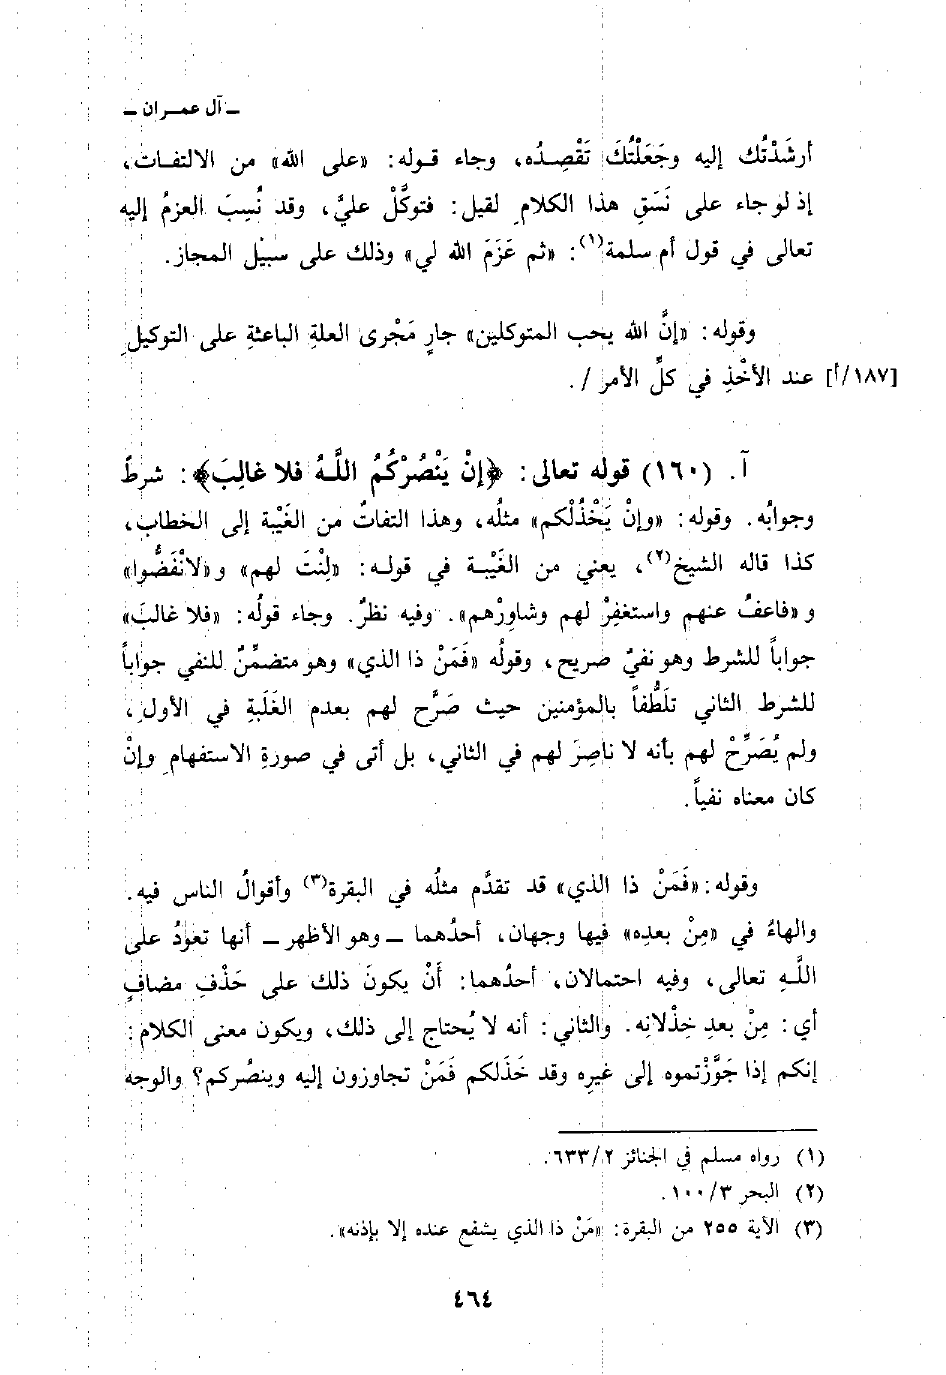 ـ آل عمـران ـ
أرشَدْتُك إليه وجَعَلْتُكَ تَقْصِدُه، وجاء قـوله: «على الله» من الالتفـات،
إذ لو جاء على نَسَقِ هذا الكلامِ لقيل: فتوكَّلْ عليَّ، وقد نُسِبَ العزمُ إليه
تعالى في قول أم سلمة(١): «ثم عَزَمَ الله لي» وذلك على سبيل المجاز.
وقوله: «إنَّ الله يحب المتوكلين» جارٍ مَجْرى العلةِ الباعثةِ على التوكيلِ
[١٨٧/أ] عند الأخْذِ في كلِّ الأمر /.
آ. (١٦٠) قوله تعالى: ﴿إنْ يَنْصُرْكُمُ اللَّهُ فلا غالِبَ﴾: شرطٌ
وجوابُه. وقوله: «وإنْ يَخْذُلْكم» مثلُه، وهذا التفاتٌ من الغَيْبة إلى الخطاب،
كذا قاله الشيخ(٢)، يعني من الغَيْبـة في قولـه: «لِنْتَ لهم» و«لانْفَضُّوا»
و«فاعفُ عنهم واستغفِرْ لهم وشاوِرْهم». وفيه نظرٌ. وجاء قولُه: «فلا غالبَ»
جواباً للشرط وهو نفيٌ صريح، وقولُه «فَمَنْ ذا الذي» وهو متضمِّنٌ للنفي جواباً
للشرط الثاني تلَطُّفاً بالمؤمنين حيث صَرَّح لهم بعدم الغَلَبةِ في الأول،
ولم يُصَرِّحْ لهم بأنه لا ناصِرَ لهم في الثاني، بل أتى في صورةِ الاستفهامِ وإنْ
كان معناه نفياً.
وقوله: «فَمَنْ ذا الذي» قد تقدَّم مثلُه في البقرة(٣) وأقوالُ الناس فيه.
والهاءُ في «مِنْ بعدِه» فيها وجهان، أحدُهما ــ وهو الأظهر ــ أنها تعودُ على
اللَّهِ تعالى، وفيه احتمالان، أحدُهما: أَنْ يكونَ ذلك على حَذْفِ مضافٍ
أي: مِنْ بعدِ خِذْلانِه. والثاني: أنه لا يُحتاج إلى ذلك، ويكون معنى الكلام:
إنكم إذا جَوَّزْتموه إلى غيرِه وقد خَذَلكم فَمَنْ تجاوزون إليه وينصُركم؟ والوجه
(١) رواه مسلم في الجنائز ٦٣٣/٢.
(٢) البحر ١٠٠/٣.
(٣) الآية ٢٥٥ من البقرة: «مَنْ ذا الذي يشفع عنده إلا بإذنه».
٤٦٤